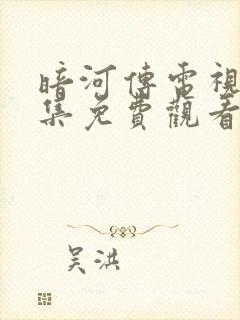 暗河傳電視
集免費觀看
吳洪